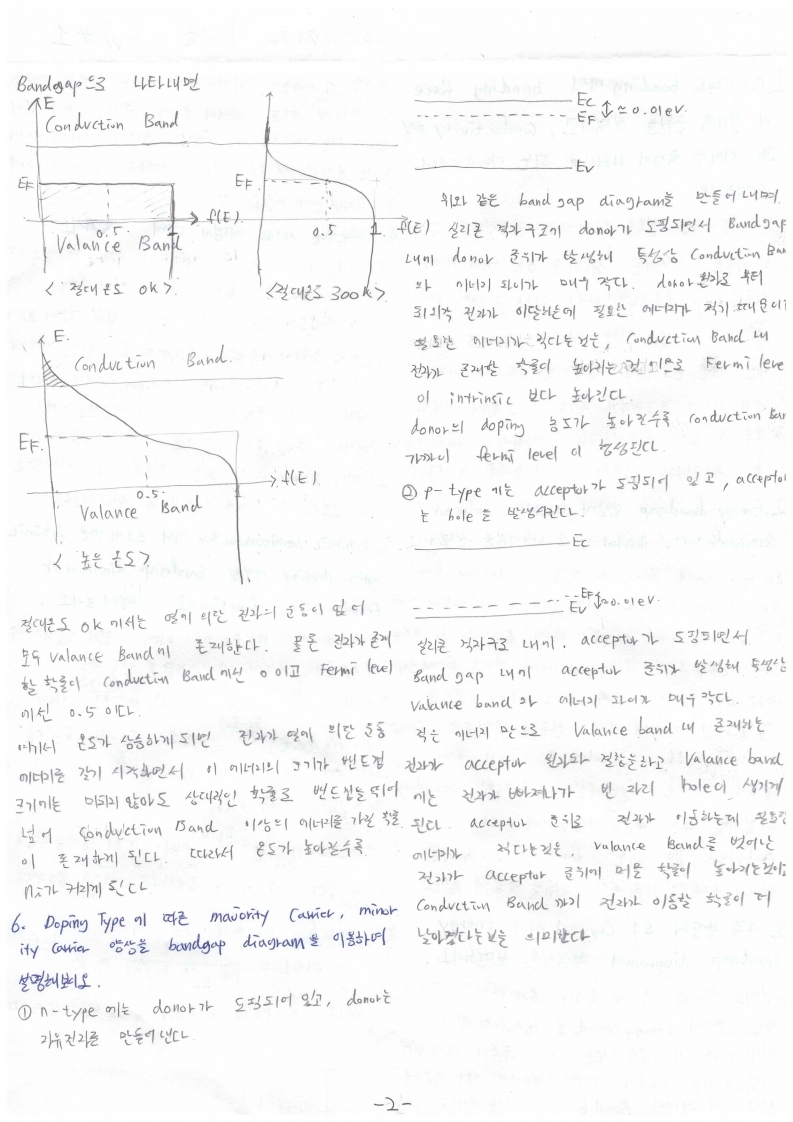 Bandgap으로 나타내면
E
Conduction Band
EF
0.5
1
f(E).
Valance Band
< 절대온도 0K >.
EF.
0.5
1
f(E)
<절대온도 300K>.
E.
Conduction Band.
EF.
0.5
1
f(E).
Valance Band
< 높은 온도 >
절대온도 0K 에서는 열에 의한 전자의 운동이 없어
모두 Valance Band에 존재한다. 물론 전자가 존재
할 확률이 Conduction Band에선 0이고 Fermi level
에선 0.5 이다.
여기서 온도가 상승하게 되면 전자가 열에 의한 운동
에너지를 갖기 시작하면서 이 에너지의 크기가 밴드갭
크기에는 미치지 않아도 상대적인 확률로 밴드갭을 뛰어
넘어 Conduction Band 이상의 에너지를 가질 확률
이 존재하게 된다. 따라서 온도가 높아질수록
ni가 커지게 된다.
6. Doping Type에 따른 majority Carrier, minor
ity Carrier 양상을 bandgap diagram을 이용하여
설명해보시오.
① n-type 에는 donor가 도핑되어 있고, donor는
자유전자를 만들어 낸다.
Ec
EF
≃ 0.01eV.
Ev
위와 같은 band gap diagram을 만들어 내며
실리콘 격자구조에 donor가 도핑되면서 Bandgap
내에 donor 준위가 발생해 특성상 Conduction Ban
와 에너지 차이가 매우 작다. donor 원자로 부터
최외각 전자가 이탈하는데 필요한 에너지가 적기 때문이다
필요한 에너지가 작다는것은, Conduction Band 내
전자가 존재할 확률이 높아지는 것 이므로 Fermi leve
이 intrinsic 보다 높아진다.
donor의 doping 농도가 높아질수록 conduction Ban
가까이 fermi level 이 형성된다.
② p-type 에는 acceptor가 도핑되어 있고, acceptor
는 hole 을 발생시킨다.
Ec
EF
Ev
≃0.01eV.
실리콘 격자구조 내에. acceptor가 도핑되면서
Band gap 내에 acceptor 준위가 발생해 특성상
Valance band 와 에너지 차이가 매우 작다.
적은 에너지 만으로 Valance band 내 존재하는
전자가 acceptor 원자와 결합을하고 Valance band
에는 전자가 빠져나가 빈 자리 hole이 생기게
된다. acceptor 준위로 전자가 이동하는데 필요한
에너지가 적다는것은, Valance Band를 벗어난
전자가 acceptor 준위에 머물 확률이 높아지는것이고
Conduction Band 까지 전자가 이동할 확률이 더
낮아졌다는것을 의미한다.
-2-